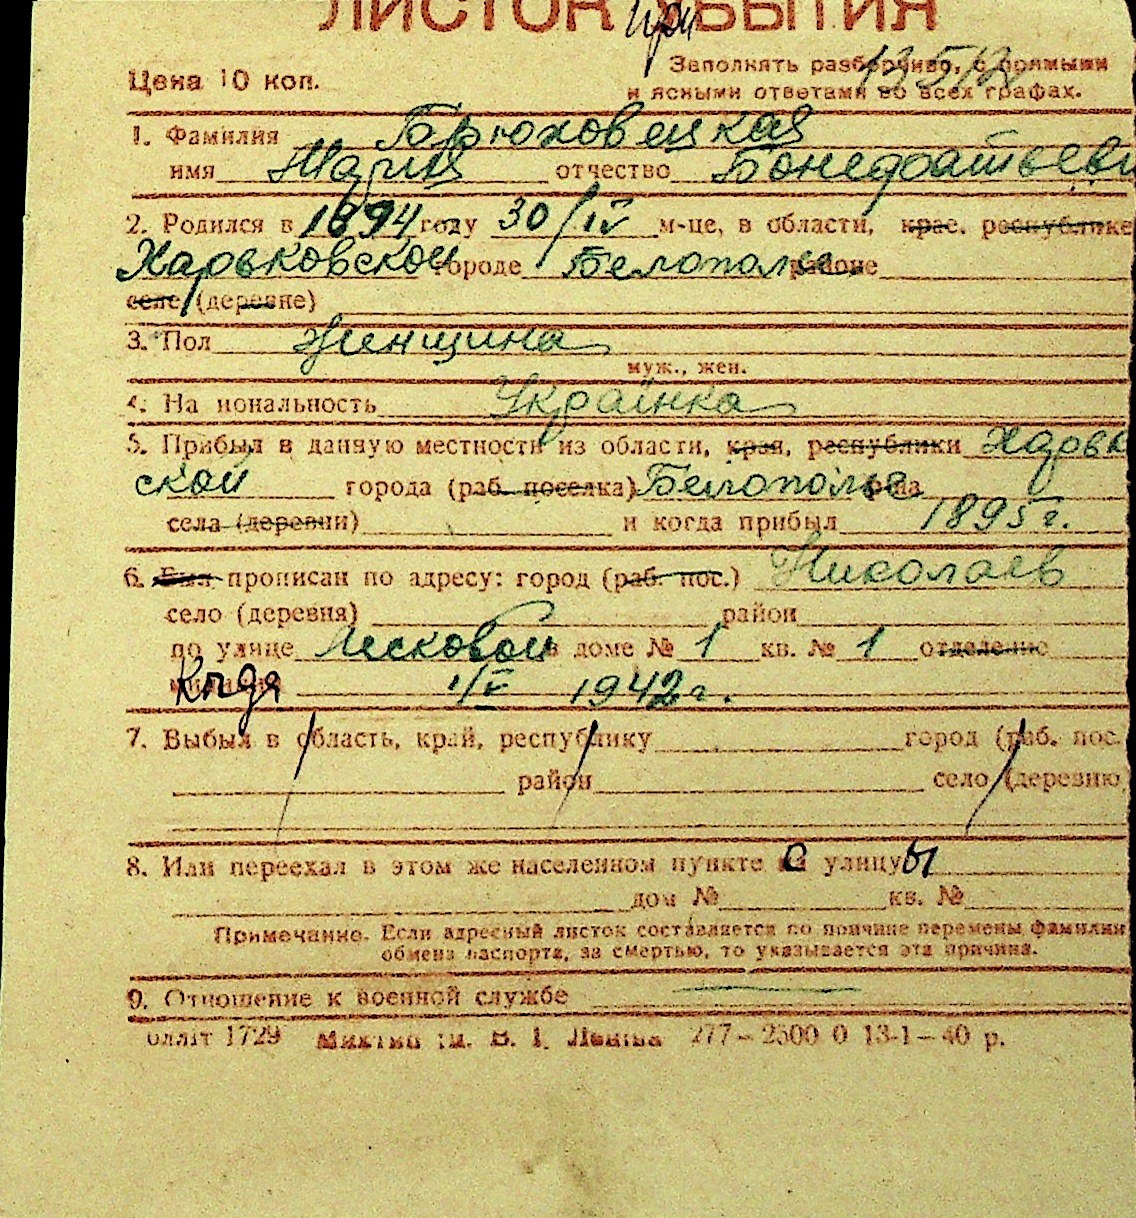 ЛИСТОК при УБЫТИЯ
Заполнять разборчиво, с прямыми
Цена 10 коп.
и ясными ответами во всех графах.
1. Фамилия Брюховецкая
имя Мария отчество Бонефатьевн
2. Родился в 1894 году 30/IV м-це, в области, крае, республике
Харьковской городе Белополье районе
селе (деревне)
3. Пол женщина
муж., жен.
4. Национальность Украінка
5. Прибыл в данную местность из области, края, республики Харьк
ской города (раб. поселка) Белополье
села (деревни) и когда прибыл 1895 г.
6. Был прописан по адресу: город (раб. пос.) Николаев
село (деревня) район
по улице Лесковой в доме № 1 кв. № 1 отделение
Когда 1/V 1942 г.
7. Выбыл в область, край, республику город (раб. пос.
район село (деревню
8. Или переехал в этом же населенном пункте с улицы
дом № кв. №
Примечание. Если адресный листок составляется по причине перемены фамилии
обмена паспорта, за смертью, то указывается эта причина.
9. Отношение к военной службе
1729 ім. В. І. Леніна 277–2500 0 13-1–40 р.